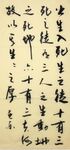 出生入死生之徒十有三
死之徒十有三人之生動
之死地亦十有三夫何
故以其生生之厚